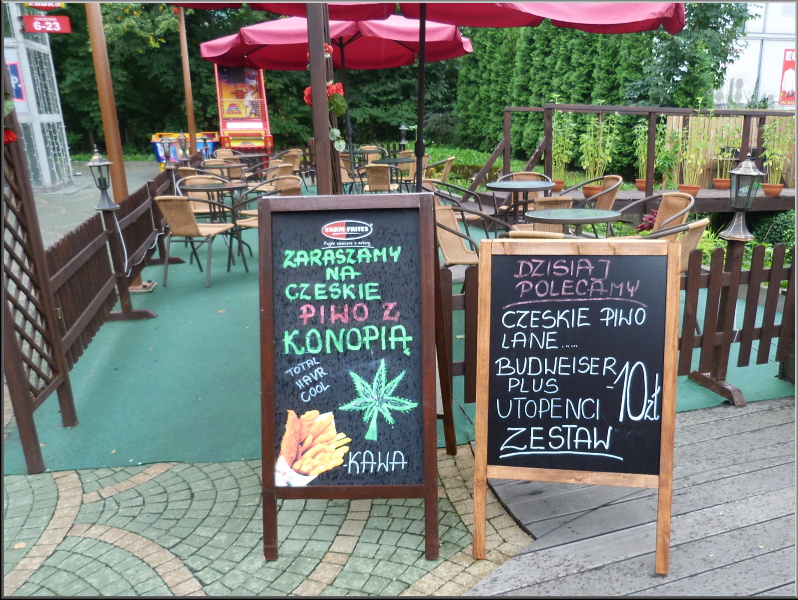 6-23
FARM FRITES
ZARASZAMY
NA
CZESKIE
PIWO Z
KONOPIĄ
TOTAL
HAVR
COOL
-KAWA
DZISIAJ
POLECAMY
CZESKIE PIWO
LANE.....
BUDWEISER
PLUS
UTOPENCI
-10zł
ZESTAW